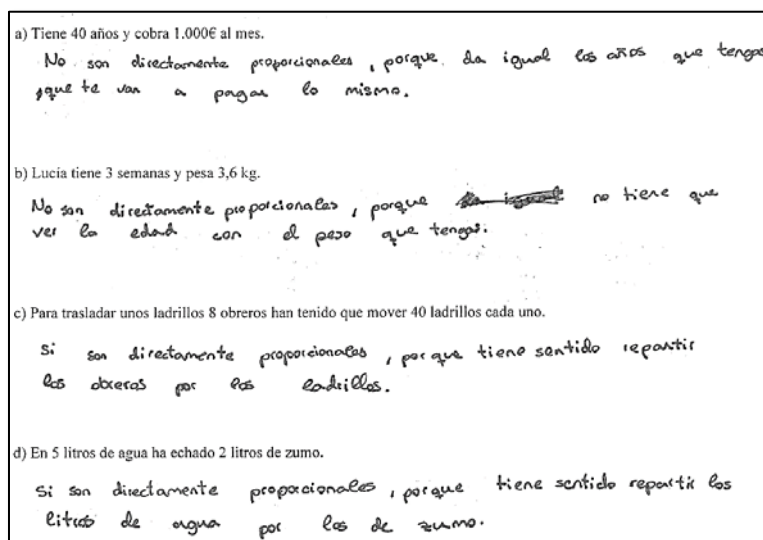 a) Tiene 40 años y cobra 1.000€ al mes.
No son directamente proporcionales, porque da igual los años que tengas
que te van a pagar lo mismo.
b) Lucía tiene 3 semanas y pesa 3,6 kg.
No son directamente proporcionales, porque no tiene que
ver la edad con el peso que tengas.
c) Para trasladar unos ladrillos 8 obreros han tenido que mover 40 ladrillos cada uno.
Si son directamente proporcionales, porque tiene sentido repartir
los obreros por los ladrillos.
d) En 5 litros de agua ha echado 2 litros de zumo.
Si son directamente proporcionales, porque tiene sentido repartir los
litros de agua por los de zumo.